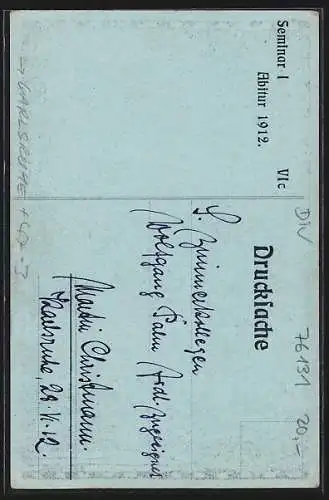 Seminar I
Abitur 1912. VIc
Drucksache
S. Zimmerkollegen
Wolfgang Palm frdl. zugeeignet
Martin Christmann.
Karlsruhe, 29. VI. 12.
→ KARLSRUHE
DIV
76131 20,-